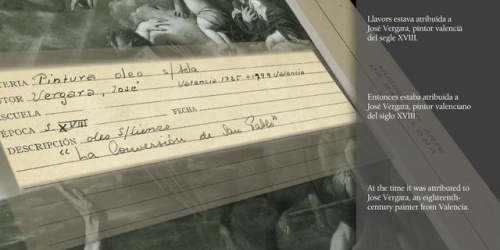 TERIA Pintura oleo s/tela
TOR Vergara, José Valencia 1725 + 1799 Valencia
ESCUELA FECHA
ÉPOCA S XVIII
DESCRIPCIÓN oleo s/lienzo
"La Conversión de San Pablo"
Llavors estava atribuïda a
José Vergara, pintor valencià
del segle XVIII.
Entonces estaba atribuida a
José Vergara, pintor valenciano
del siglo XVIII.
At the time it was attributed to
José Vergara, an eighteenth-
century painter from Valencia.